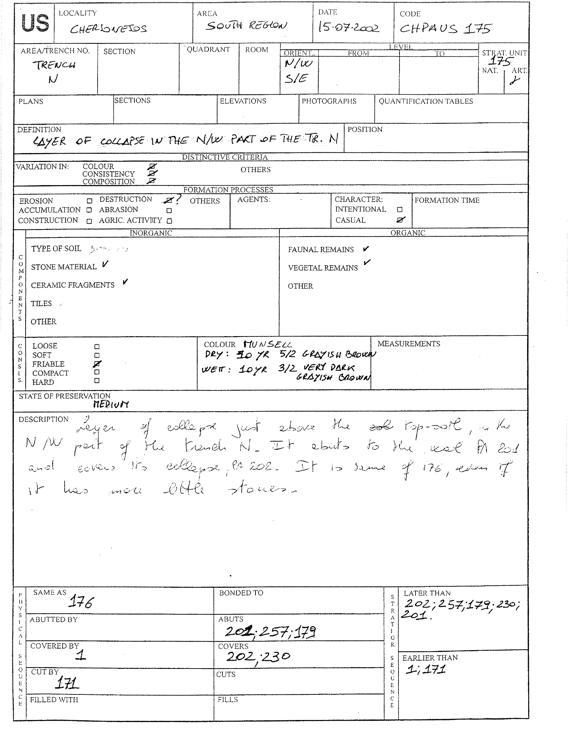 US
LOCALITY
CHERSONESOS
AREA
SOUTH REGION
DATE
15-07-2002
CODE
CHPAUS 175
AREA/TRENCH NO.
TRENCH
N
SECTION
QUADRANT
ROOM
ORIENT.
N/W
S/E
LEVEL
FROM
TO
STRAT. UNIT
175
NAT.
ART.
PLANS
SECTIONS
ELEVATIONS
PHOTOGRAPHS
QUANTIFICATION TABLES
DEFINITION
LAYER OF COLLAPSE IN THE N/W PART OF THE TR. N
POSITION
DISTINCTIVE CRITERIA
VARIATION IN:
COLOUR
CONSISTENCY
COMPOSITION
OTHERS
FORMATION PROCESSES
EROSION
DESTRUCTION ?
OTHERS
ACCUMULATION
ABRASION
CONSTRUCTION
AGRIC. ACTIVITY
AGENTS:
CHARACTER:
INTENTIONAL
CASUAL
FORMATION TIME
COMPONENTS
INORGANIC
TYPE OF SOIL
STONE MATERIAL ✓
CERAMIC FRAGMENTS ✓
TILES
OTHER
ORGANIC
FAUNAL REMAINS ✓
VEGETAL REMAINS ✓
OTHER
CONSIS.
LOOSE
SOFT
FRIABLE
COMPACT
HARD
COLOUR MUNSELL
DRY: 10 YR 5/2 GRAYISH BROWN
WET: 10 YR 3/2 VERY DARK
GRAYISH BROWN
MEASUREMENTS
STATE OF PRESERVATION
MEDIUM
DESCRIPTION
Layer of collapse just above the top-soil, in the
N/W part of the trench N. It abuts to the wall PA 201
and covers its collapse, PA 202. It is same of 176, even if
it has more little stones.
PHYSICAL SEQUENCE
SAME AS
176
BONDED TO
ABUTTED BY
ABUTS
201;257;179
COVERED BY
1
COVERS
202;230
CUT BY
171
CUTS
FILLED WITH
FILLS
STRATIGR SEQUENCE
LATER THAN
202;257;179;230;
201.
EARLIER THAN
1;171